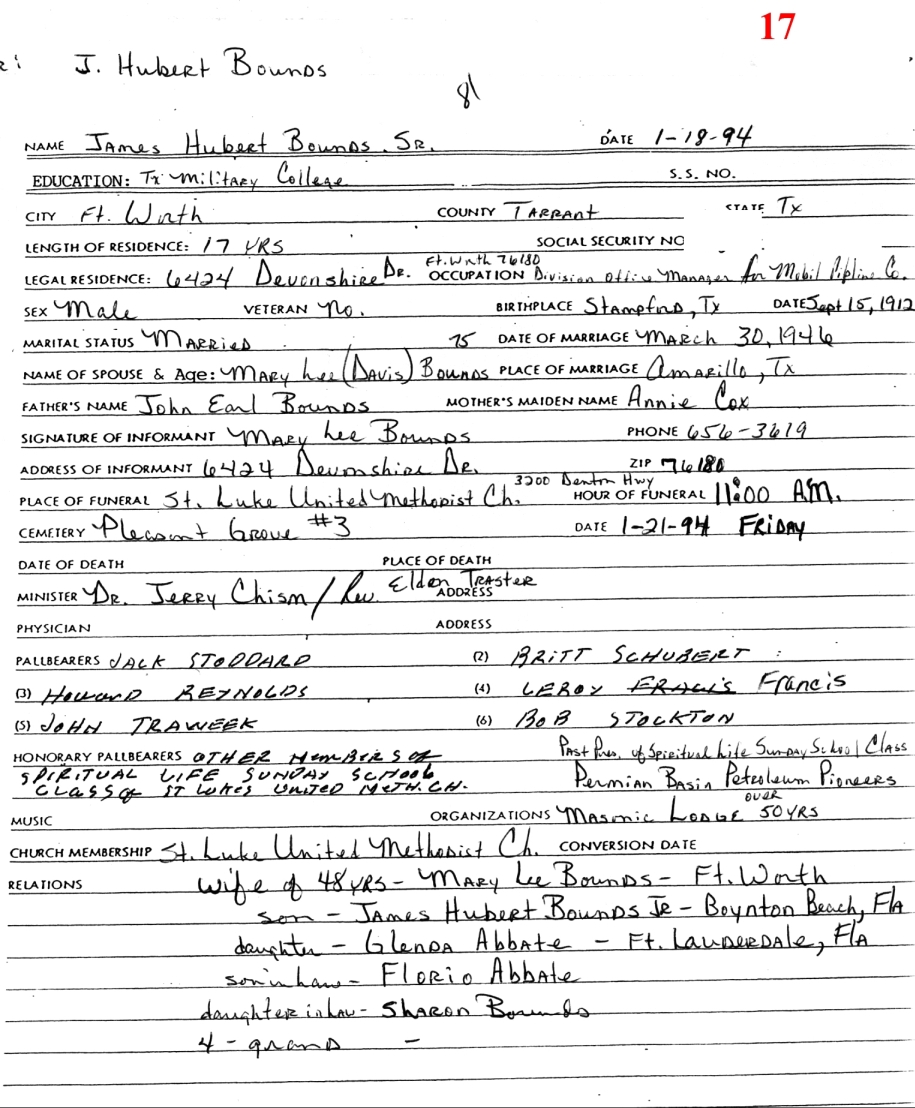 17
J. Hubert Bounds
81
NAME James Hubert Bounds. Sr. DATE 1-18-94
EDUCATION: Tx Military College S.S. NO.
CITY Ft. Worth COUNTY TARRANT STATE Tx
LENGTH OF RESIDENCE: 17 YRS SOCIAL SECURITY NO
LEGAL RESIDENCE: 6424 Devonshire Dr. Ft. Worth 76180 OCCUPATION Division Office Manager for Mobil Pipline Co.
SEX Male VETERAN No. BIRTHPLACE Stamford, Tx DATE Sept 15, 1912
MARITAL STATUS MARRIED 75 DATE OF MARRIAGE MARCH 30, 1946
NAME OF SPOUSE & Age: MARY Lee (DAVIS) Bounds PLACE OF MARRIAGE Amarillo, Tx
FATHER'S NAME John Earl Bounds MOTHER'S MAIDEN NAME Annie Cox
SIGNATURE OF INFORMANT MARY Lee Bounds PHONE 656-3619
ADDRESS OF INFORMANT 6424 Devonshire Dr. ZIP 76180
PLACE OF FUNERAL St. Luke United Methodist Ch. 3200 Denton Hwy HOUR OF FUNERAL 11:00 AM.
CEMETERY Pleasant Grove #3 DATE 1-21-94 FRIDAY
DATE OF DEATH PLACE OF DEATH
MINISTER DR. JERRY Chism / Rev. Elden TRASTER ADDRESS
PHYSICIAN ADDRESS
PALLBEARERS JACK STODDARD (2) BRITT SCHUBERT
(3) HOWARD REYNOLDS (4) LEROY FRACIS Francis
(5) JOHN TRAWEEK (6) BOB STOCKTON
HONORARY PALLBEARERS OTHER MEMBERS OF Past Pres. of Spiritual Life Sunday School Class
SPIRITUAL LIFE SUNDAY SCHOOL Permian Basin Petroleum Pioneers
CLASS of ST LUKES UNITED METH. CH.
MUSIC ORGANIZATIONS MASONIC LODGE over 50 YRS
CHURCH MEMBERSHIP St. Luke United Methodist Ch. CONVERSION DATE
RELATIONS wife of 48 YRS - MARY Lee Bounds - Ft. Worth
son - JAMES Hubert Bounds JR - Boynton Beach, FlA
daughter - GLENDA Abbate - Ft. LAUDERDALE, FlA
son in law - FLORIO Abbate
daughter in law - SHARON Bounds
4 - grand -